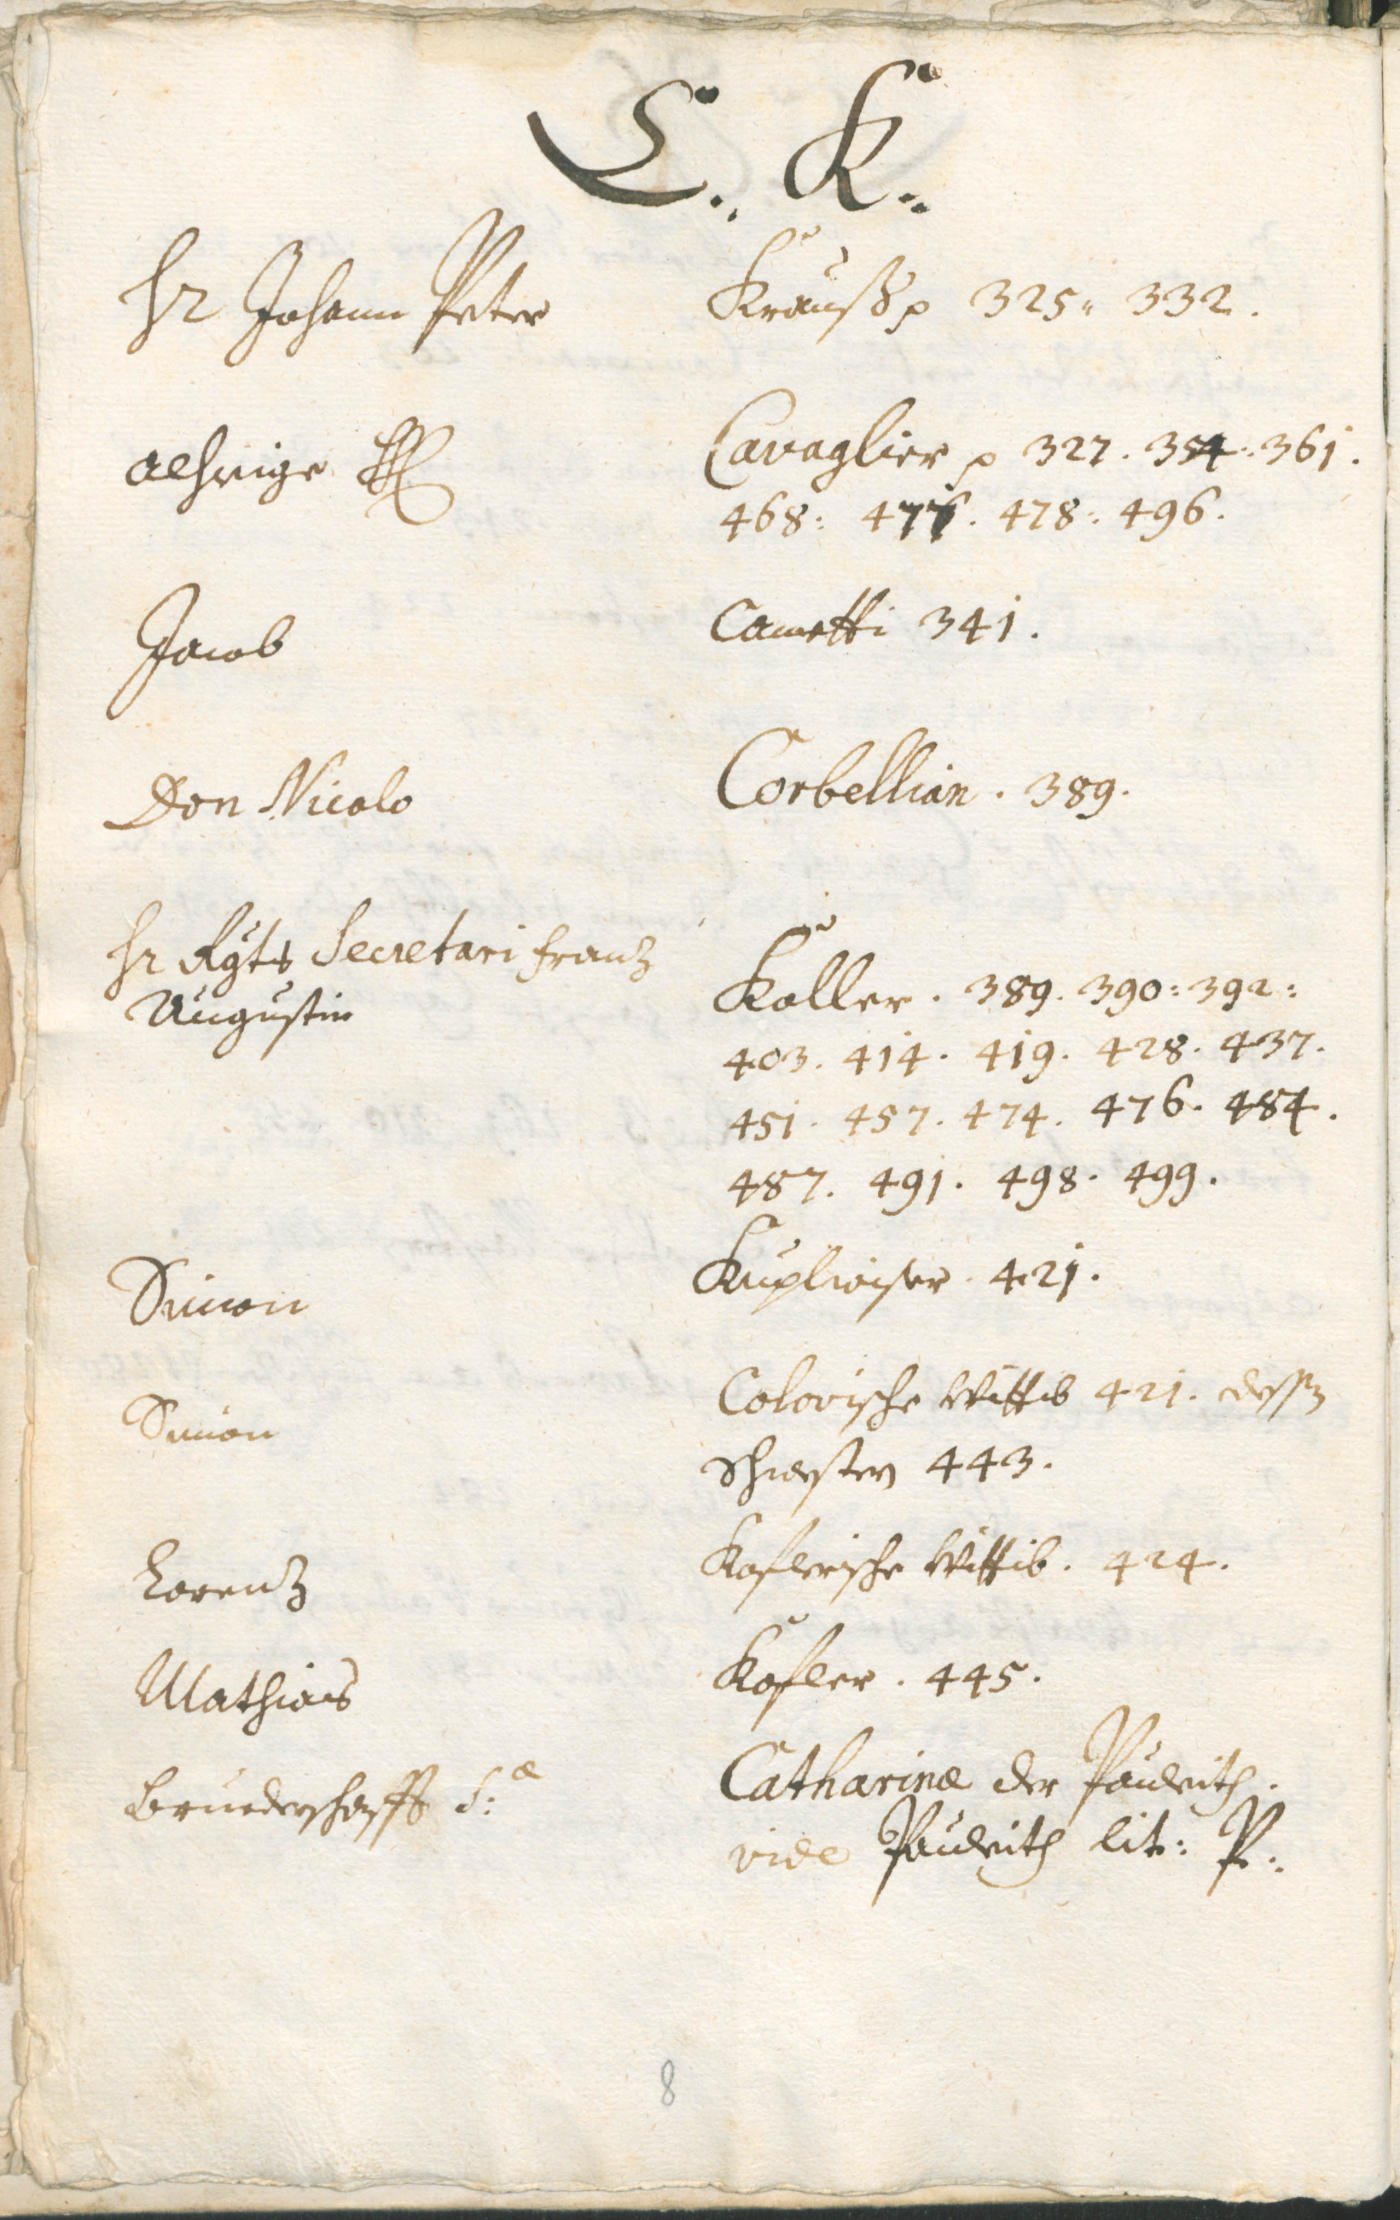 C. K.
Hr Johann Peter Krauß p 325. 332.
Cavaglier p 327. 354. 361.
468: 476. 478: 496.
Jacob Cametti 341.
Don Nicolo Corbellian. 389.
Hr Rgts Secretari Franz
Augustin Koller. 389. 390: 392:
403. 414. 419. 428. 437.
451. 457. 474. 476. 484.
487. 491. 498. 499.
Simon Kuplwiser. 421.
Simon Colorische Wittib 421. dessen
443.
Lorenz Koflerische Wittib. 424.
Mathias Kofler. 445.
Bruederschafft S:ae Catharinae der
vide lit: P:
8